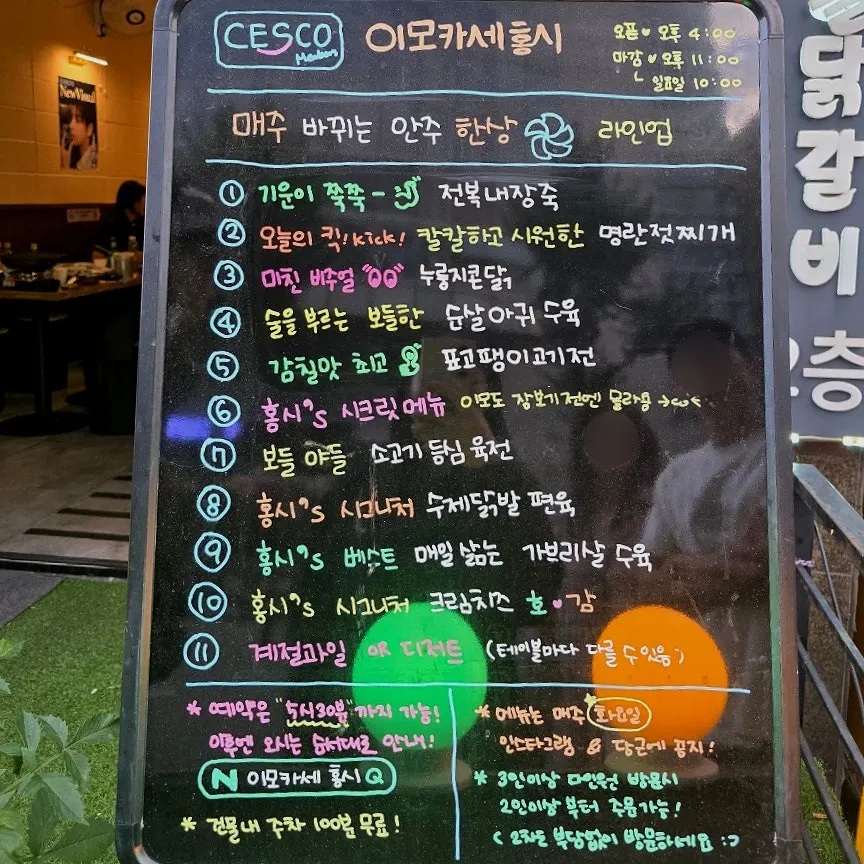 CESCO Members 이모카세홍시
오픈♥오후 4:00
마감♥오후 11:00
일요일 10:00
매주 바뀌는 안주 한상 라인업
① 기운이 쭉쭉- 전복내장죽
② 오늘의 킥! kick! 칼칼하고 시원한 명란젓찌개
③ 미친 비주얼 누룽지콘닭
④ 술을 부르는 보들한 순살아귀 수육
⑤ 감칠맛 최고 표고팽이고기전
⑥ 홍시's 시크릿메뉴 이모도 장보기전엔 몰라용
⑦ 보들 야들 소고기 등심 육전
⑧ 홍시's 시그니처 수제닭발 편육
⑨ 홍시's 베스트 매일 삶는 가브리살 수육
⑩ 홍시's 시그니처 크림치즈 호♥감
⑪ 계절과일 OR 디저트 (테이블마다 다를 수 있음)
* 예약은 "5시30분"까지 가능!
이후엔 오시는 순서대로 안내!
N 이모카세 홍시 Q
* 건물내 주차 100분 무료!
* 메뉴는 매주 화요일
인스타그램 & 당근에 공지!
* 3인이상 다인원 방문시
2인이상 부터 주문가능!
( 2차도 부담없이 방문하세요 :)
NewVisual
닭갈비
2층